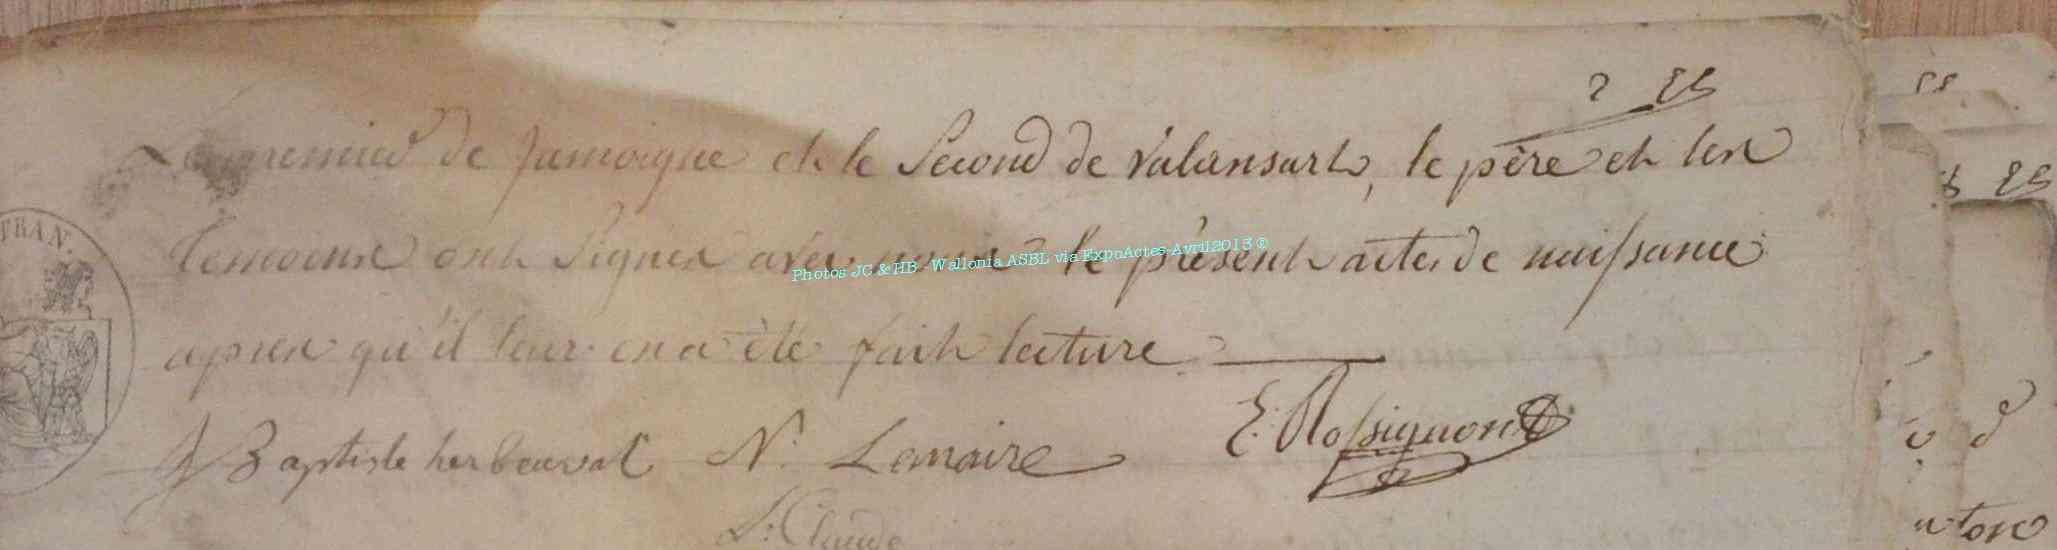 2 25
Le premier de Jamoigne et le Second de Valansart, le père et les
temoins ont Signés avec nous le présent acte de naissance
apres qu'il leur en a été fait lecture
J Baptiste herbeuval N. Lemaire E. Rossignon
Claude
FRAN.
Photos JC & HB - Wallonia ASBL via ExpoActes-Avril2013 ©
25